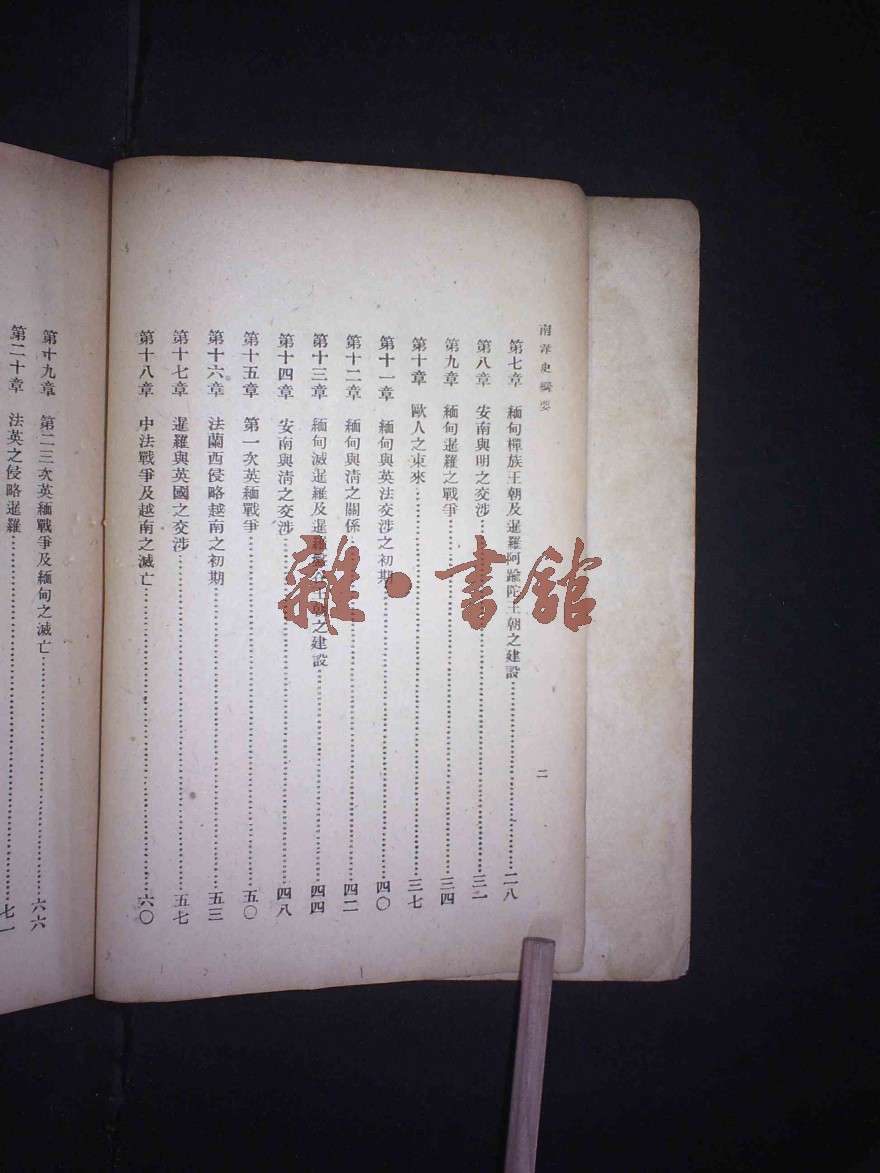 南洋史綱要
二
第七章　緬甸撣族王朝及暹羅阿踰陀王朝之建設……二八
第八章　安南與明之交涉……三一
第九章　緬甸暹羅之戰爭……三四
第十章　歐人之東來……三七
第十一章　緬甸與英法交涉之初期……四〇
第十二章　緬甸與淸之關係……四二
第十三章　緬甸滅暹羅及暹羅盤谷王朝之建設……四四
第十四章　安南與淸之交涉……四八
第十五章　第一次英緬戰爭……五〇
第十六章　法蘭西侵略越南之初期……五三
第十七章　暹羅與英國之交涉……五七
第十八章　中法戰爭及越南之滅亡……六〇
第十九章　第二三次英緬戰爭及緬甸之滅亡……六六
第二十章　法英之侵略暹羅……七一
雜·書館